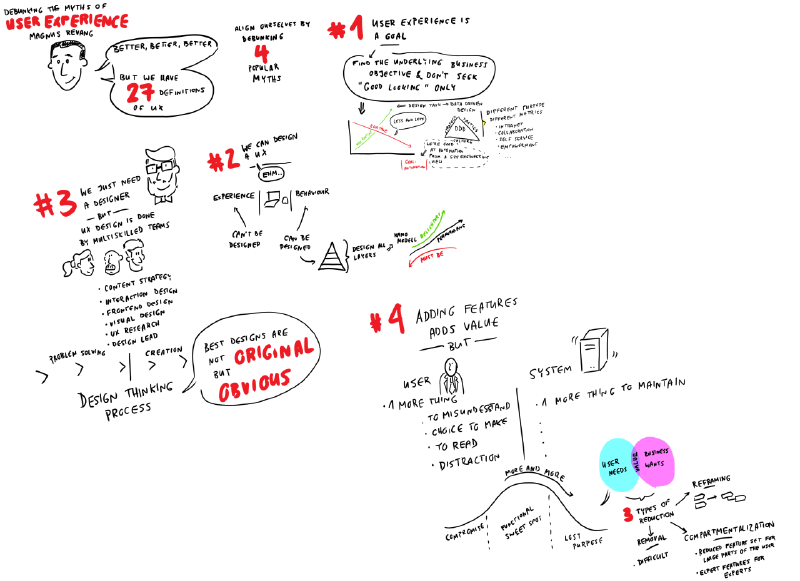 DEBUNKING THE MYTHS OF
USER EXPERIENCE
MAGNUS REVANG
BETTER, BETTER, BETTER
BUT WE HAVE
27 DEFINITIONS
OF UX
ALIGN OURSELVES BY
DEBUNKING
4
POPULAR
MYTHS
#1 USER EXPERIENCE IS
A GOAL
FIND THE UNDERLYING BUSINESS
OBJECTIVE & DON'T SEEK
"GOOD LOOKING" ONLY
DESIGN TASK → DATA DRIVEN
DESIGN
LESS AND LESS
DDD
DIFFERENT PURPOSE
DIFFERENT METRICS
• INTRANET
• COLLABORATION
• SELF SERVICE
• EMPOWERMENT
...
WE'RE GOOD
AT AUTOMATION
#2 WE CAN DESIGN
A UX
EHM...
EXPERIENCE
BEHAVIOUR
CAN'T BE
DESIGNED
CAN BE
DESIGNED
DESIGN ALL
LAYERS
KANO
MODELL
PERFORMANCE
MUST BE
#3 WE JUST NEED
A DESIGNER
BUT
UX DESIGN IS DONE
BY MULTISKILLED TEAMS
• CONTENT STRATEGY
• INTERACTION DESIGN
• FRONTEND DESIGN
• VISUAL DESIGN
• UX RESEARCH
• DESIGN LEAD
PROBLEM SOLVING
CREATION
DESIGN THINKING
PROCESS
BEST DESIGNS ARE
NOT ORIGINAL
BUT
OBVIOUS
#4 ADDING FEATURES
ADDS VALUE
BUT
USER
• 1 MORE THING
• TO MISUNDERSTAND
• CHOICE TO MAKE
• TO READ
• DISTRACTION
SYSTEM
• 1 MORE THING TO MAINTAIN
MORE AND MORE
COMPROMISE
FUNCTIONAL
SWEET SPOT
LOST
PURPOSE
USER
NEEDS
VALUE
BUSINESS
WANTS
3 TYPES OF
REDUCTION
REFRAMING
REMOVAL
• DIFFICULT
COMPARTMENTALIZATION
• REDUCED FEATURE SET FOR
LARGE PARTS OF THE USER
• EXPERT FEATURES FOR
EXPERTS